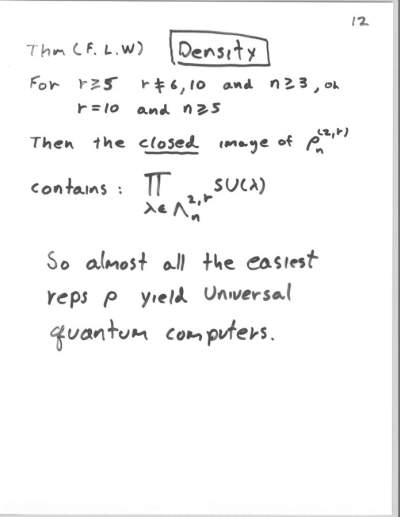 12
Thm (F. L. W) Density
For r≥5 r≠6, 10 and n≥3, or
r=10 and n≥5
Then the closed image of ρₙ^(2,r)
contains: ∏_{λ∈Λₙ^{2,r}} SU(λ)
So almost all the easiest
reps ρ yield Universal
quantum computers.